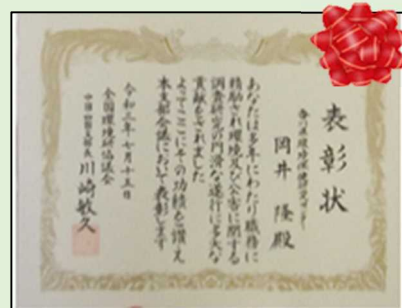 表彰状
香川県環境保健研究センター
岡井 隆殿
あなたは多年にわたり職務に
精励され環境及び公害に関する
調査研究の円滑な遂行に多大な
貢献をされました
よってここにその功績を讃え
本支部会議において表彰します
令和三年七月十五日
全国環境研協議会
中国・四国支部長 川崎敏久